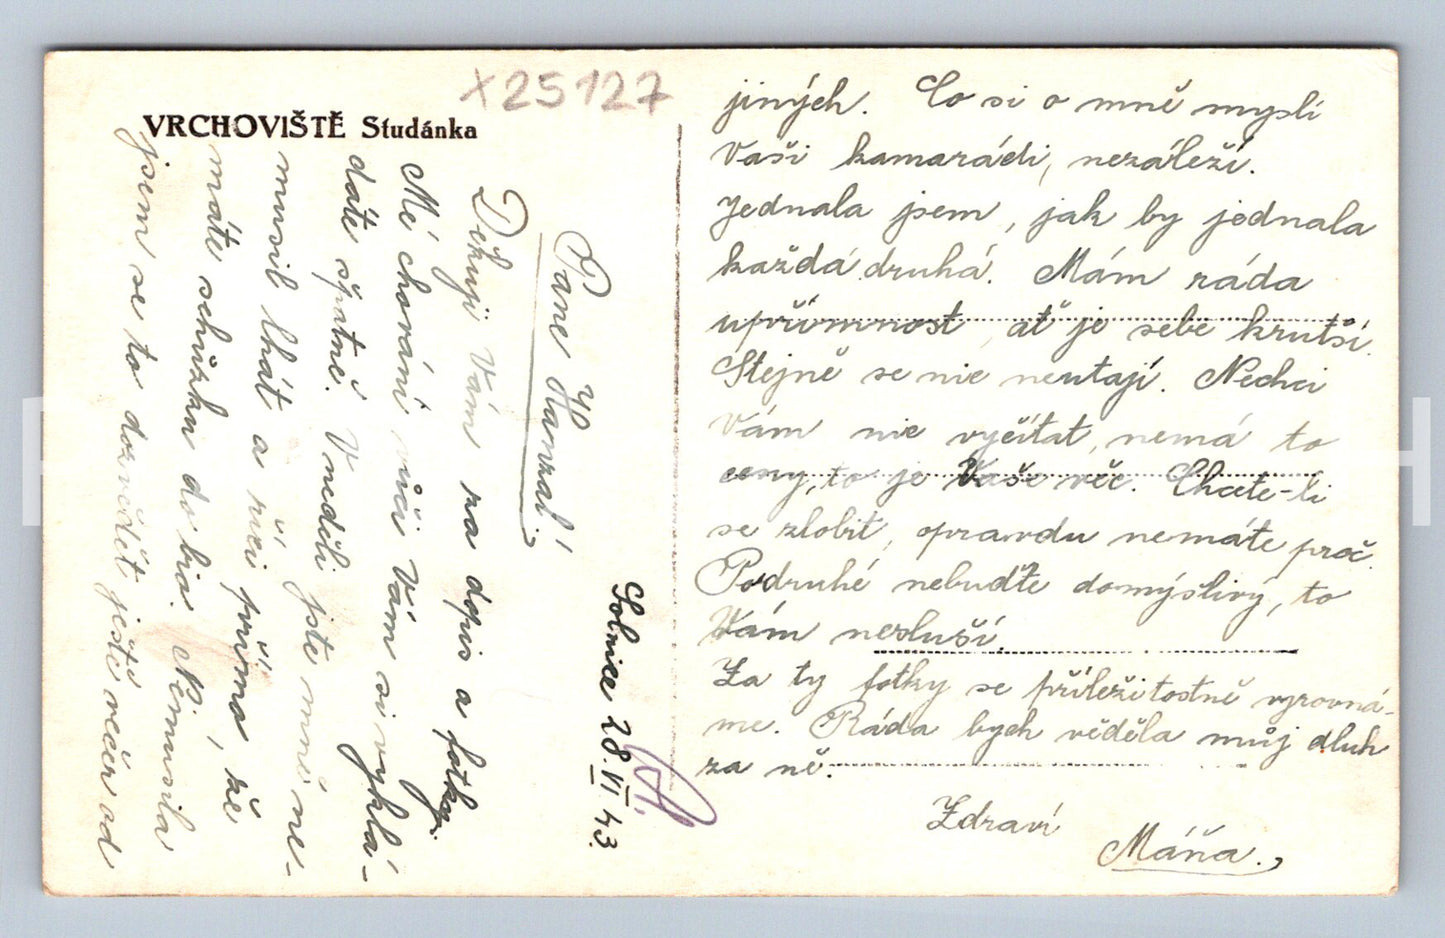 x25127
VRCHOVIŠTĚ Studánka
Solnice 28.VI.43.
Pane Hanzal!
Děkuji Vám za dopis a fotky.
Mé chování vůči Vám si vyklá-
dáte špatně. V neděli jste mně ne-
musil lhát a říci přímo, že
máte schůzku do bia. Nemusila
jsem se to dozvědět ještě večer od
jiných. Co si o mně myslí
Vaši kamarádi, nezáleží.
Jednala jsem, jak by jednala
každá druhá. Mám ráda
upřímnost, ať je sebe krutší.
Stejně se nic neutají. Nechci
Vám nic vyčítat, nemá to
ceny, to je Vaše věc. Chcete-li
se zlobit, opravdu nemáte proč.
Podruhé nebuďte domýšlivý, to
Vám nesluší.
Za ty fotky se příležitostně vyrovná-
me. Ráda bych věděla můj dluh
za ně.
Zdraví
Máňa.